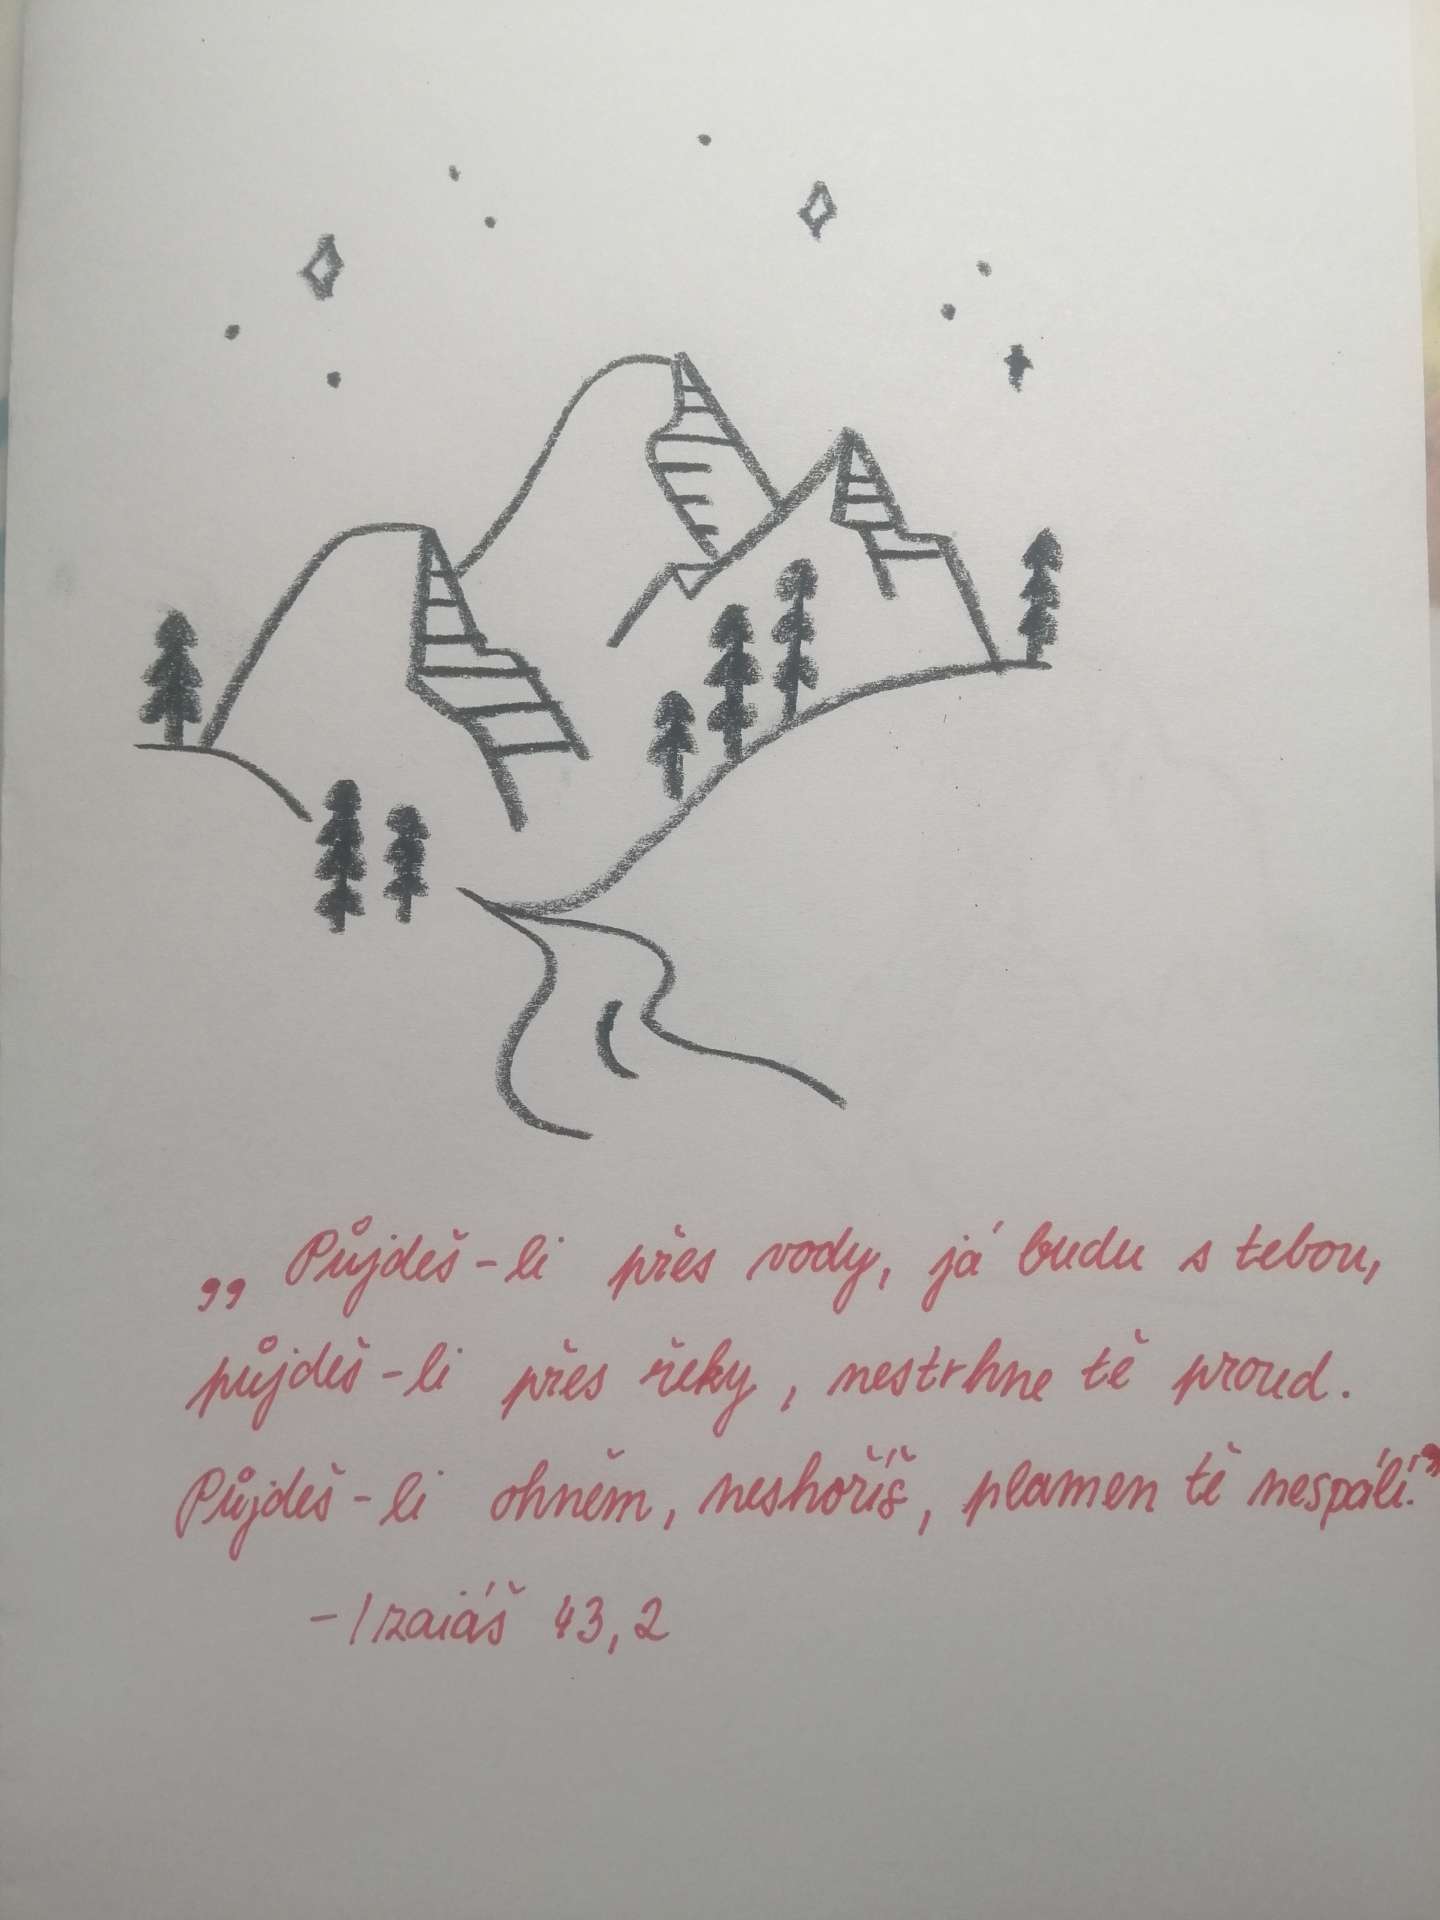 „Půjdeš-li přes vody, já budu s tebou,
půjdeš-li přes řeky, nestrhne tě proud.
Půjdeš-li ohněm, neshoříš, plamen tě nespálí.”
- Izaiáš 43,2